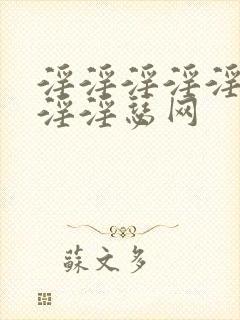 淫淫淫淫淫
淫淫瑟网
蘇文多